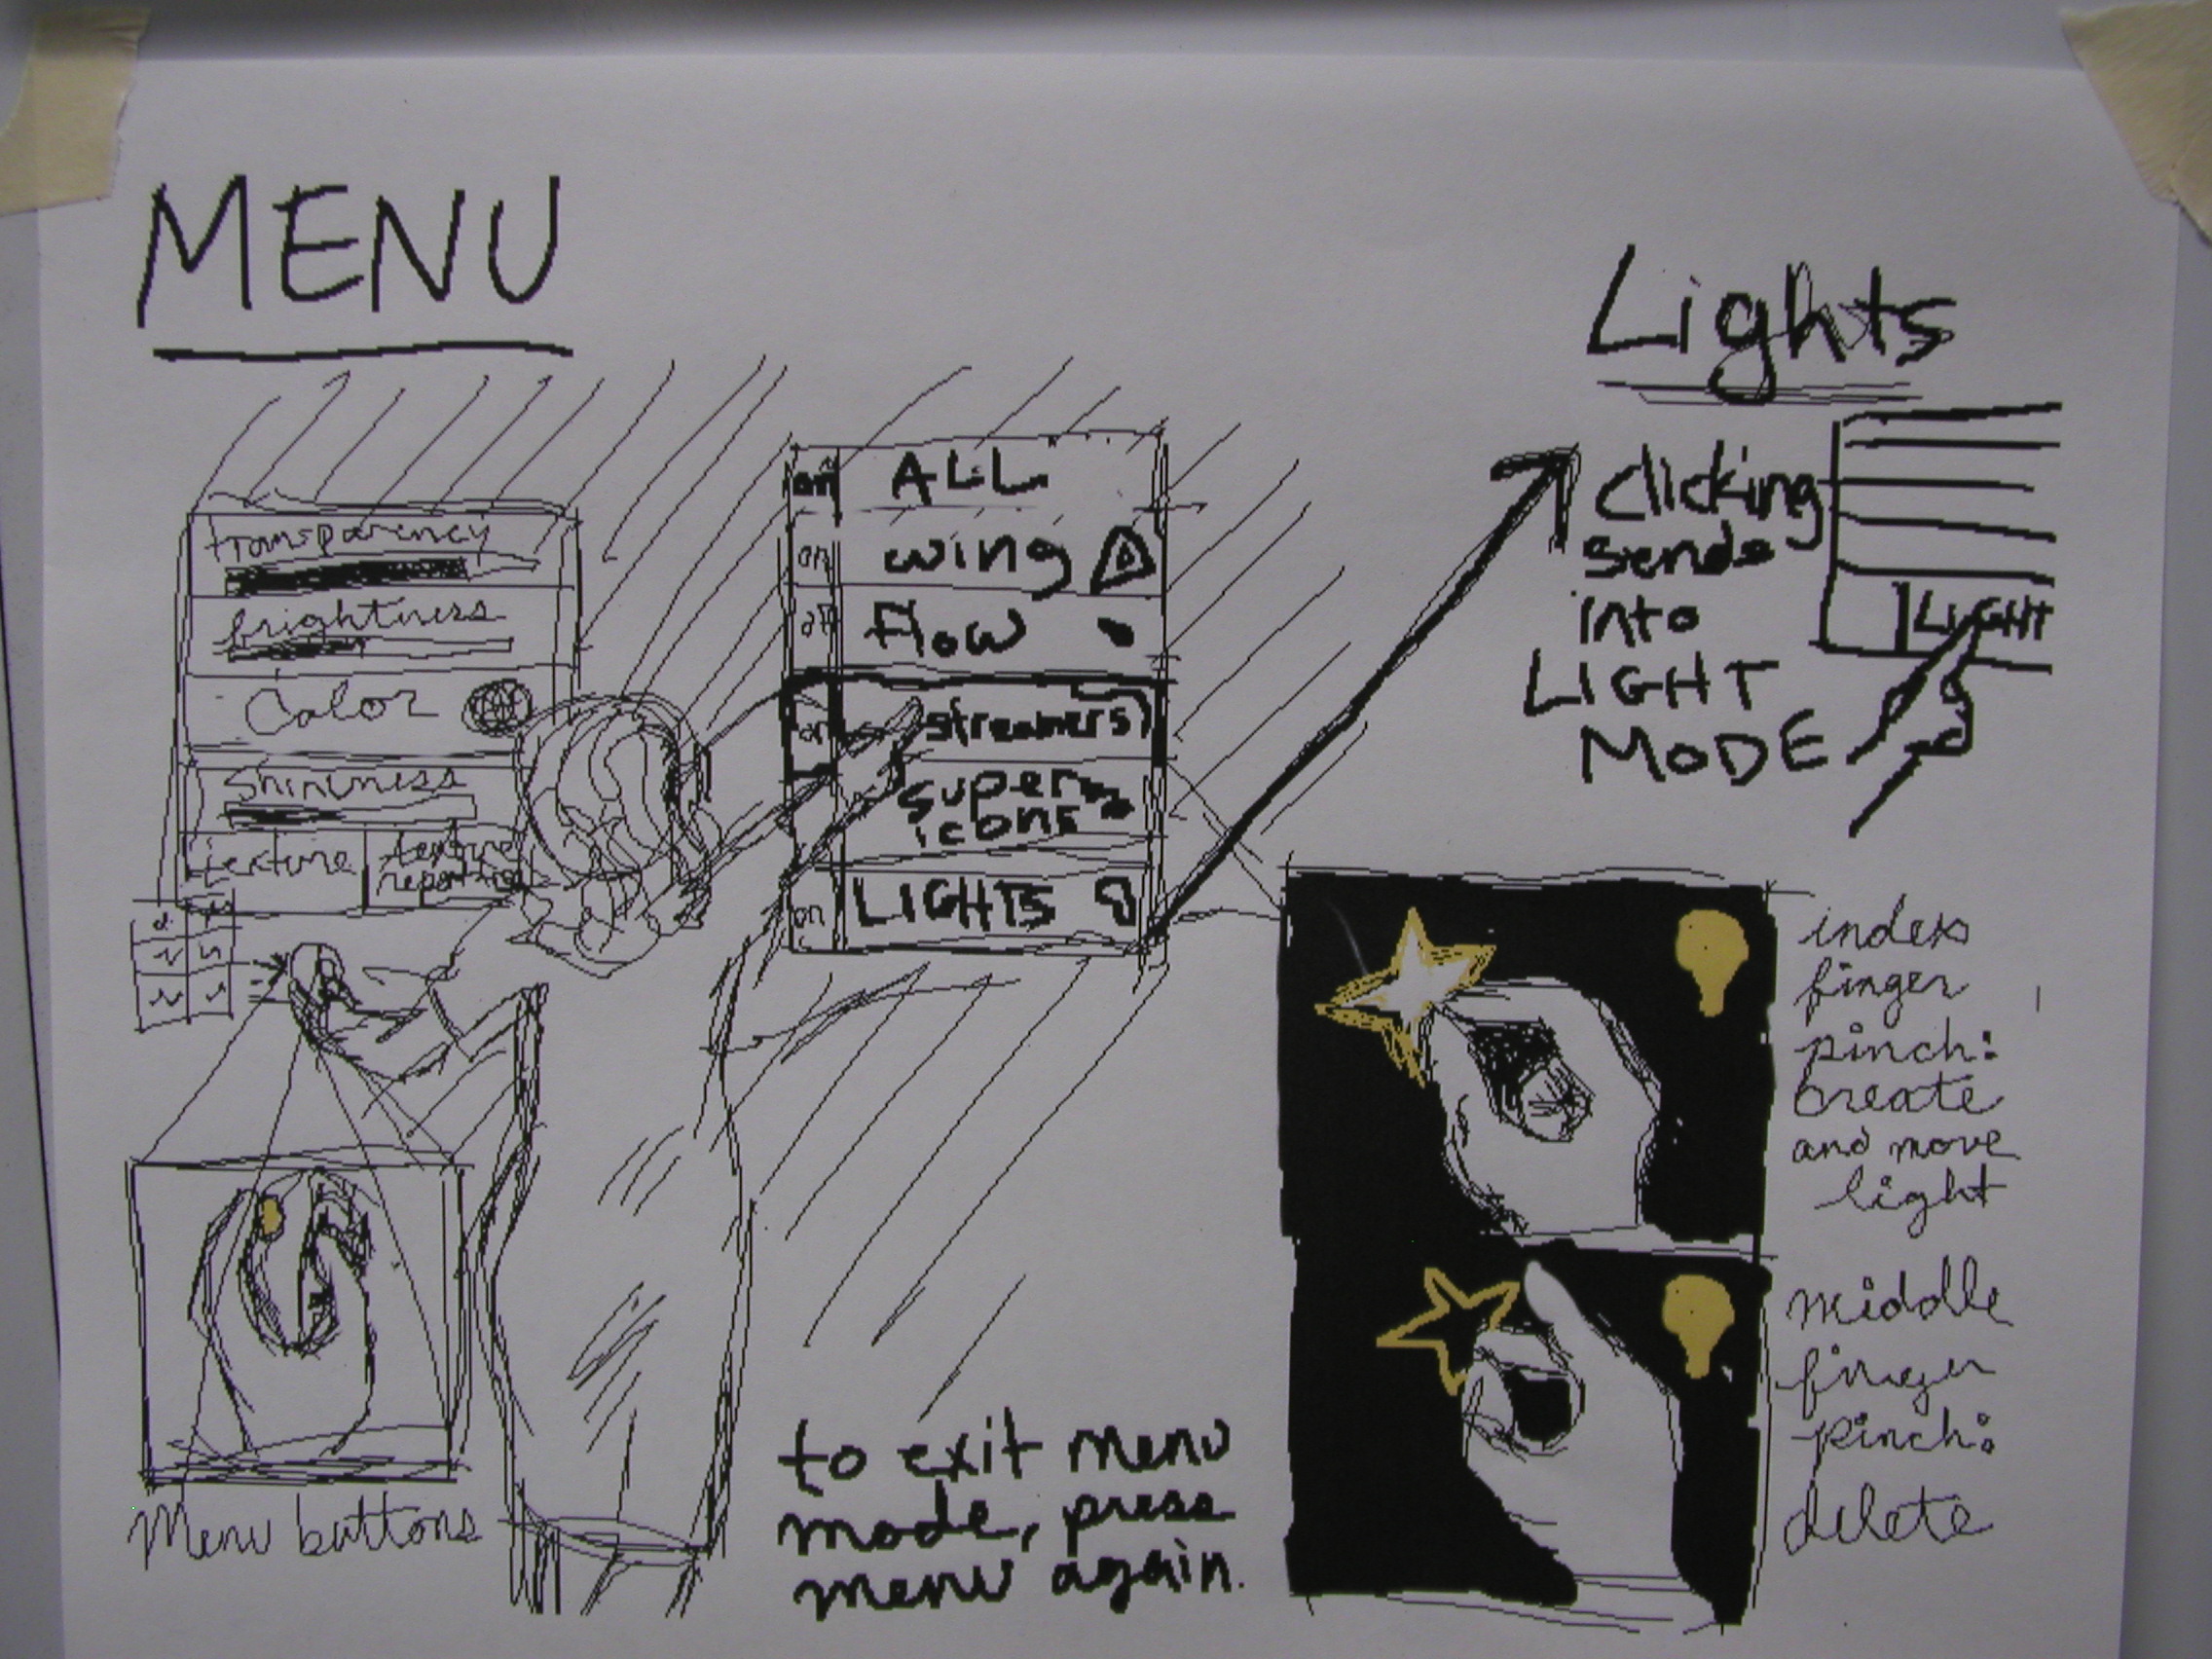 MENU
transparency
brightness
Color
shininess
texture
texture
on ALL
on wing
off flow
on streamers
super
icons
on LIGHTS
Menu buttons
to exit menu
mode, press
menu again.
Lights
Clicking
sends
into
LIGHT
MODE
LIGHT
index
finger
pinch:
create
and move
light
middle
finger
pinch:
delete